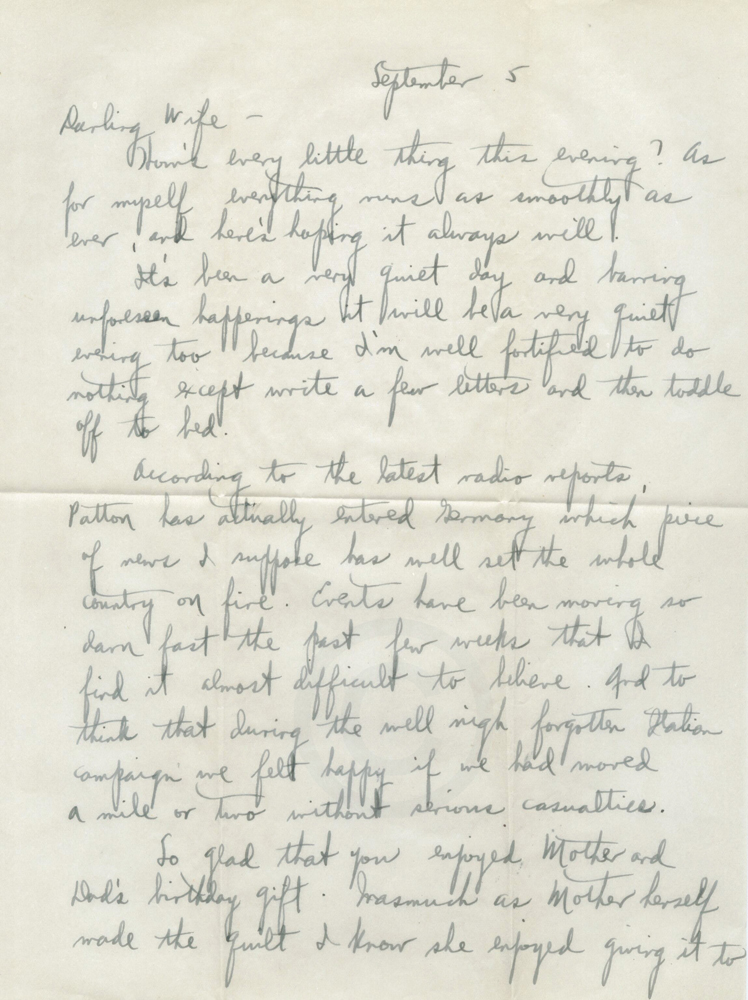 September 5
Darling Wife -
How's every little thing this evening? As
for myself everything runs as smoothly as
ever, and here's hoping it always will!
It's been a very quiet day and barring
unforeseen happenings it will be a very quiet
evening too because I'm well fortified to do
nothing except write a few letters and then toddle
off to bed.
According to the latest radio reports,
Patton has actually entered Germany which piece
of news I suppose has well set the whole
country on fire. Events have been moving so
darn fast the past few weeks that I
find it almost difficult to believe. And to
think that during the well nigh forgotten Italian
campaign we felt happy if we had moved
a mile or two without serious casualties.
So glad that you enjoyed Mother and
Dad's birthday gift. Inasmuch as Mother herself
made the quilt I know she enjoyed giving it to